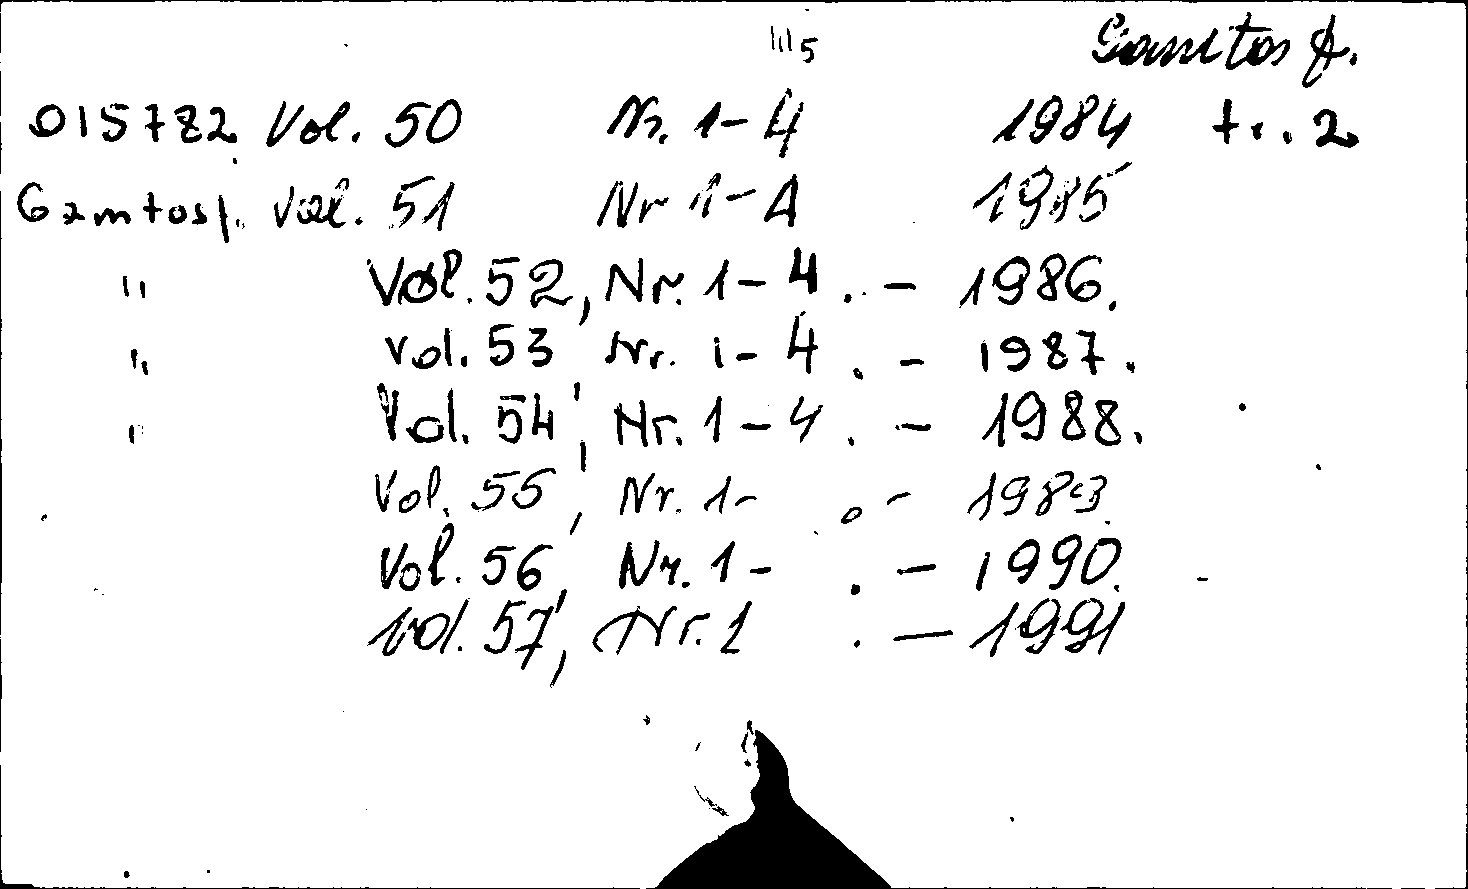 5 Gamtos f.
015782 Vol. 50 Nr. 1-4 1984 tr. 2
Gamtos f. Vol. 51 Nr 1-4 1985
" Vol. 52, Nr. 1-4. - 1986.
" Vol. 53, Nr. 1-4. - 1987.
" Vol. 54, Nr. 1-4. - 1988.
Vol. 55, Nr. 1- . - 1989.
Vol. 56, Nr. 1- . - 1990.
Vol. 57, Nr. 1 . - 1991